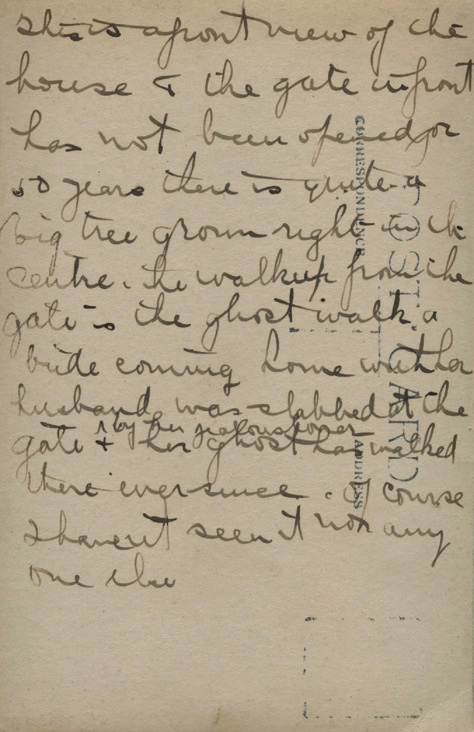 This is a front view of the
house & the gate in front
has not been opened for
50 years there is quite a
big tree grown right in the
centre. the walk up from the
gate is the ghost walk, a
bride coming home with her
husband was stabbed at the
by her jealous lover
gate & her ghost has walked
there ever since. Of course
I havent seen it nor any
one else
CORRESPONDENCE
POST CARD
ADDRESS